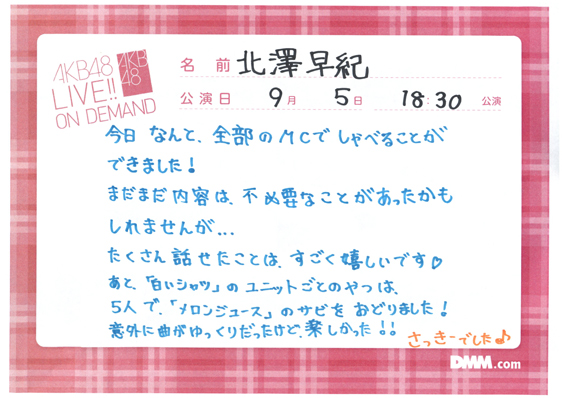 AKB48
LIVE!!
ON DEMAND
AKB
48
名前 北澤早紀
公演日 9月 5日 18:30 公演
今日 なんと、全部のMCでしゃべることが
できました！
まだまだ内容は、不必要なことがあったかも
しれませんが...
たくさん話せたことは、すごく嬉しいです♡
あと、「白いシャツ」のユニットごとのやつは、
5人で、「メロンジュース」のサビをおどりました！
意外に曲がゆっくりだったけど、楽しかった!!
さっきーでした♪
DMM.com